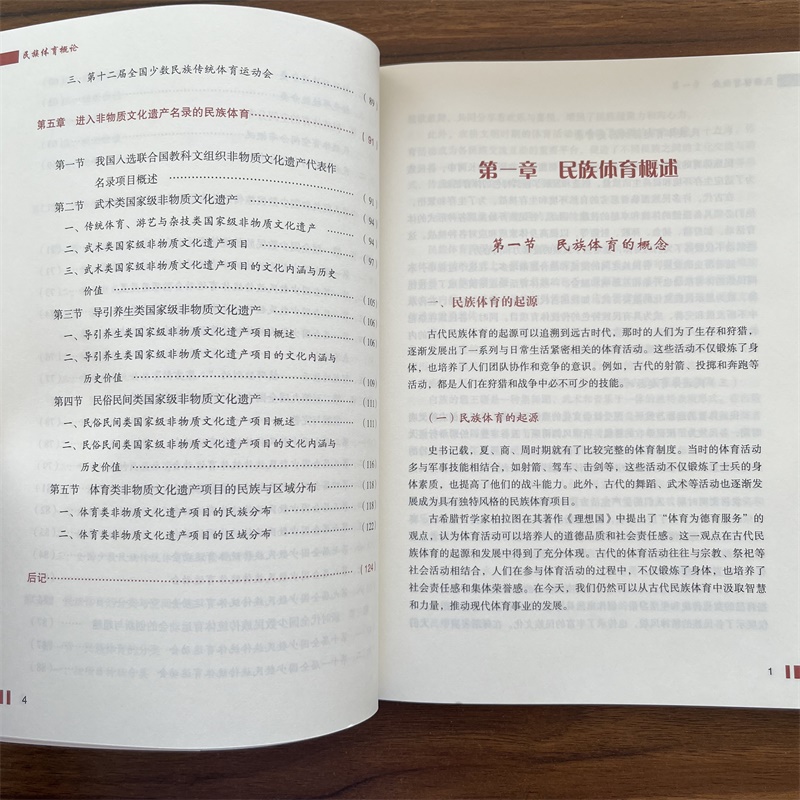 民族体育概论
三、第十二届全国少数民族传统体育运动会 ……………… (89)
第五章 进入非物质文化遗产名录的民族体育 ……………… (91)
第一节 我国入选联合国教科文组织非物质文化遗产代表作
名录项目概述 ……………… (91)
第二节 武术类国家级非物质文化遗产 ……………… (94)
一、传统体育、游艺与杂技类国家级非物质文化遗产 ……………… (94)
二、武术类国家级非物质文化遗产项目 ……………… (97)
三、武术类国家级非物质文化遗产项目的文化内涵与历史
价值 ……………… (105)
第三节 导引养生类国家级非物质文化遗产 ……………… (106)
一、导引养生类国家级非物质文化遗产项目概述 ……………… (106)
二、导引养生类国家级非物质文化遗产项目的文化内涵与
历史价值 ……………… (109)
第四节 民俗民间类国家级非物质文化遗产 ……………… (111)
一、民俗民间类国家级非物质文化遗产项目概述 ……………… (111)
二、民俗民间类国家级非物质文化遗产项目的文化内涵与
历史价值 ……………… (116)
第五节 体育类非物质文化遗产项目的民族与区域分布 ……………… (118)
一、体育类非物质文化遗产项目的民族分布 ……………… (118)
二、体育类非物质文化遗产项目的区域分布 ……………… (122)
后记 ……………… (124)
4
第一章 民族体育概述
第一节 民族体育的概念
一、民族体育的起源
古代民族体育的起源可以追溯到远古时代，那时的人们为了生存和狩猎，
逐渐发展出了一系列与日常生活紧密相关的体育活动。这些活动不仅锻炼了身
体，也培养了人们团队协作和竞争的意识。例如，古代的射箭、投掷和奔跑等
活动，都是人们在狩猎和战争中必不可少的技能。
（一）民族体育的起源
史书记载，夏、商、周时期就有了比较完整的体育制度。当时的体育活动
多与军事技能相结合，如射箭、驾车、击剑等，这些活动不仅锻炼了士兵的身
体素质，也提高了他们的战斗能力。此外，古代的舞蹈、武术等活动也逐渐发
展成为具有独特风格的民族体育项目。
古希腊哲学家柏拉图在其著作《理想国》中提出了“体育为德育服务”的
观点，认为体育活动可以培养人的道德品质和社会责任感。这一观点在古代民
族体育的起源和发展中得到了充分体现。古代的体育活动往往与宗教、祭祀等
社会活动相结合，人们在参与体育活动的过程中，不仅锻炼了身体，也培养了
社会责任感和集体荣誉感。在今天，我们仍然可以从古代民族体育中汲取智慧
和力量，推动现代体育事业的发展。
1